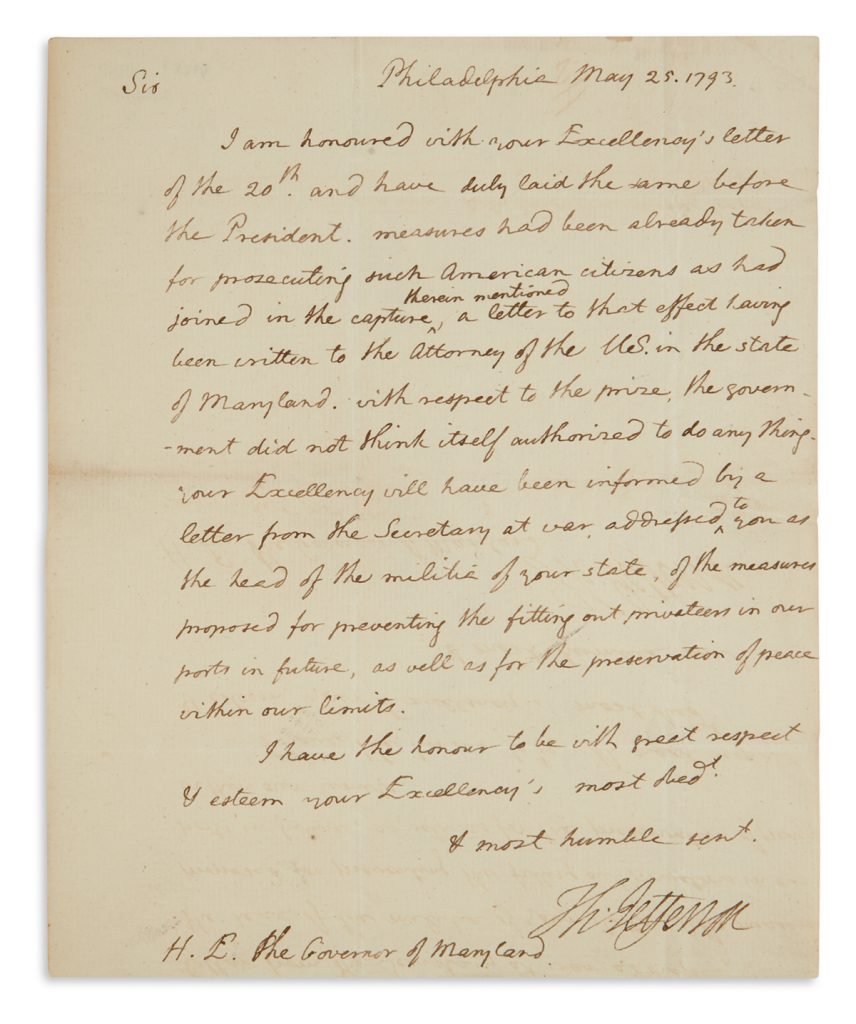 Sir
Philadelphia May 25. 1793.
I am honoured with your Excellency's letter
of the 20th. and have duly laid the same before
the President. measures had been already taken
for prosecuting such American citizens as had
therein mentioned
joined in the capture, a letter to that effect having
been written to the Attorney of the U.S. in the state
of Maryland. with respect to the prize, the govern-
-ment did not think itself authorized to do any thing.
your Excellency will have been informed by a
letter from the Secretary at war, addressed to you as
the head of the militia of your state, of the measures
proposed for preventing the fitting out privateers in our
ports in future, as well as for the preservation of peace
within our limits.
I have the honour to be with great respect
& esteem your Excellency's most obedt.
& most humble servt.
Th: Jefferson
H. E. the Governor of Maryland.